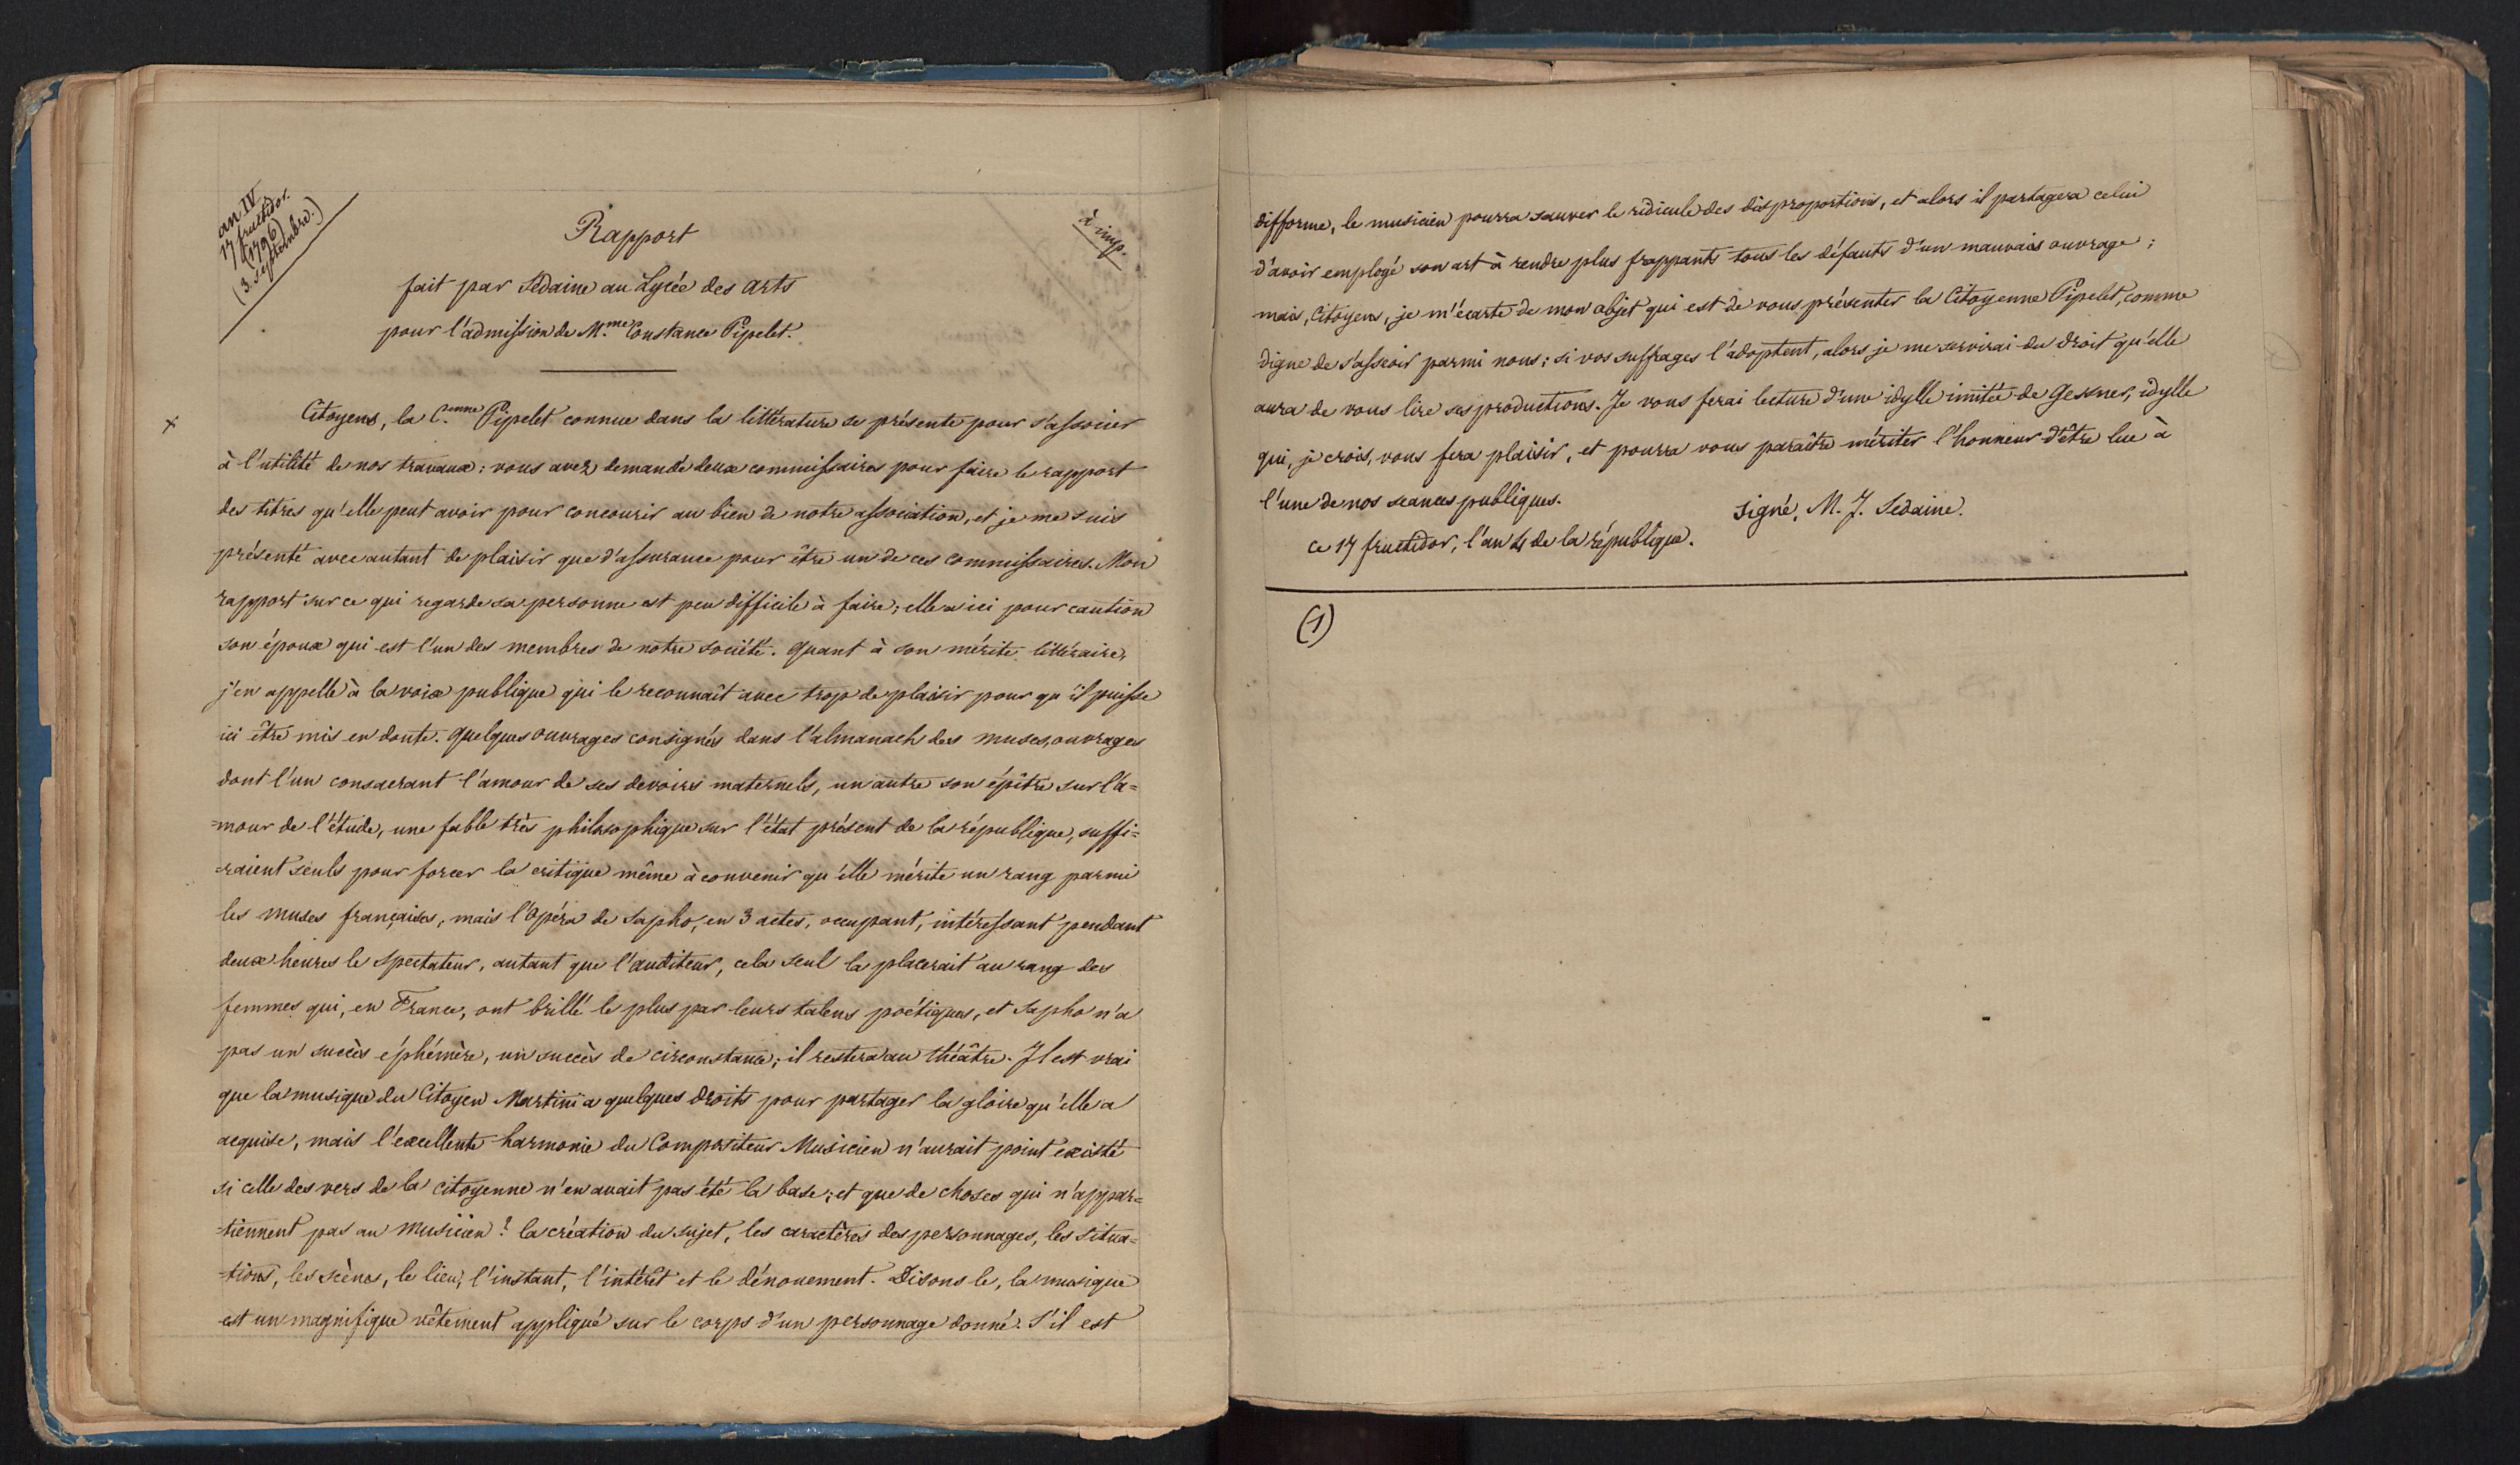 an IV
17 fructidor.
(1796)
(3. septembre.)
à imp.
Rapport
fait par Sedaine au Lycée des arts
pour l'admission de M.me Constance Pipelet.
x
Citoyens, la C.enne Pipelet connue dans la littérature se présente pour s'associer
à l'utilité de nos travaux : vous avez demandé deux commissaires pour faire le rapport
des titres qu'elle peut avoir pour concourir au bien de notre association, et je me suis
présenté avec autant de plaisir que d'assurance pour être un de ces commissaires. Mon
rapport sur ce qui regarde sa personne est peu difficile à faire; elle a ici pour caution
son époux qui est l'un des membres de notre société. Quant à son mérite littéraire,
j'en appelle à la voix publique qui le reconnaît avec trop de plaisir pour qu'il puisse
ici être mis en doute. Quelques ouvrages consignés dans l'almanach des muses, ouvrages
dont l'un consacrant l'amour de ses devoirs maternels, un autre son épître sur l'a=
=mour de l'étude, une fable très philosophique sur l'état présent de la république, suffi=
=raient seuls pour forcer la critique même à convenir qu'elle mérite un rang parmi
les muses françaises, mais l'Opéra de Sapho, en 3 actes, occupant, intéressant pendant
deux heures le spectateur, autant que l'auditeur, cela seul la placerait au rang des
femmes qui, en France, ont brillé le plus par leurs talens poétiques, et Sapho n'a
pas un succès éphémère, un succès de circonstance; il restera au théâtre. Il est vrai
que la musique du Citoyen Martini a quelques droits pour partager la gloire qu'elle a
acquise, mais l'excellente harmonie du Compositeur Musicien n'aurait point existé
si celle des vers de la citoyenne n'en avait pas été la base; et que de choses qui n'appar=
=tiennent pas au musicien ? la création du sujet, les caractères des personnages, les situa=
=tions, les scènes, le lieu, l'instant, l'intérêt et le dénouement. Disons le, la musique
est un magnifique vêtement appliqué sur le corps d'un personnage donné. S'il est
difforme, le musicien pourra sauver le ridicule des disproportions, et alors il partagera celui
d'avoir employé son art à rendre plus frappants tous les défauts d'un mauvais ouvrage ;
mais, Citoyens, je m'écarte de mon objet qui est de vous présenter la Citoyenne Pipelet, comme
digne de s'asseoir parmi nous ; si vos suffrages l'adoptent, alors je me servirai du droit qu'elle
aura de vous lire ses productions. Je vous ferai lecture d'une idylle imitée de Gessner, idylle
qui, je crois, vous fera plaisir, et pourra vous paraître mériter l'honneur d'être lue à
l'une de nos séances publiques.
signé, M. J. Sedaine.
ce 17 fructidor, l'an 4 de la république.
(1)